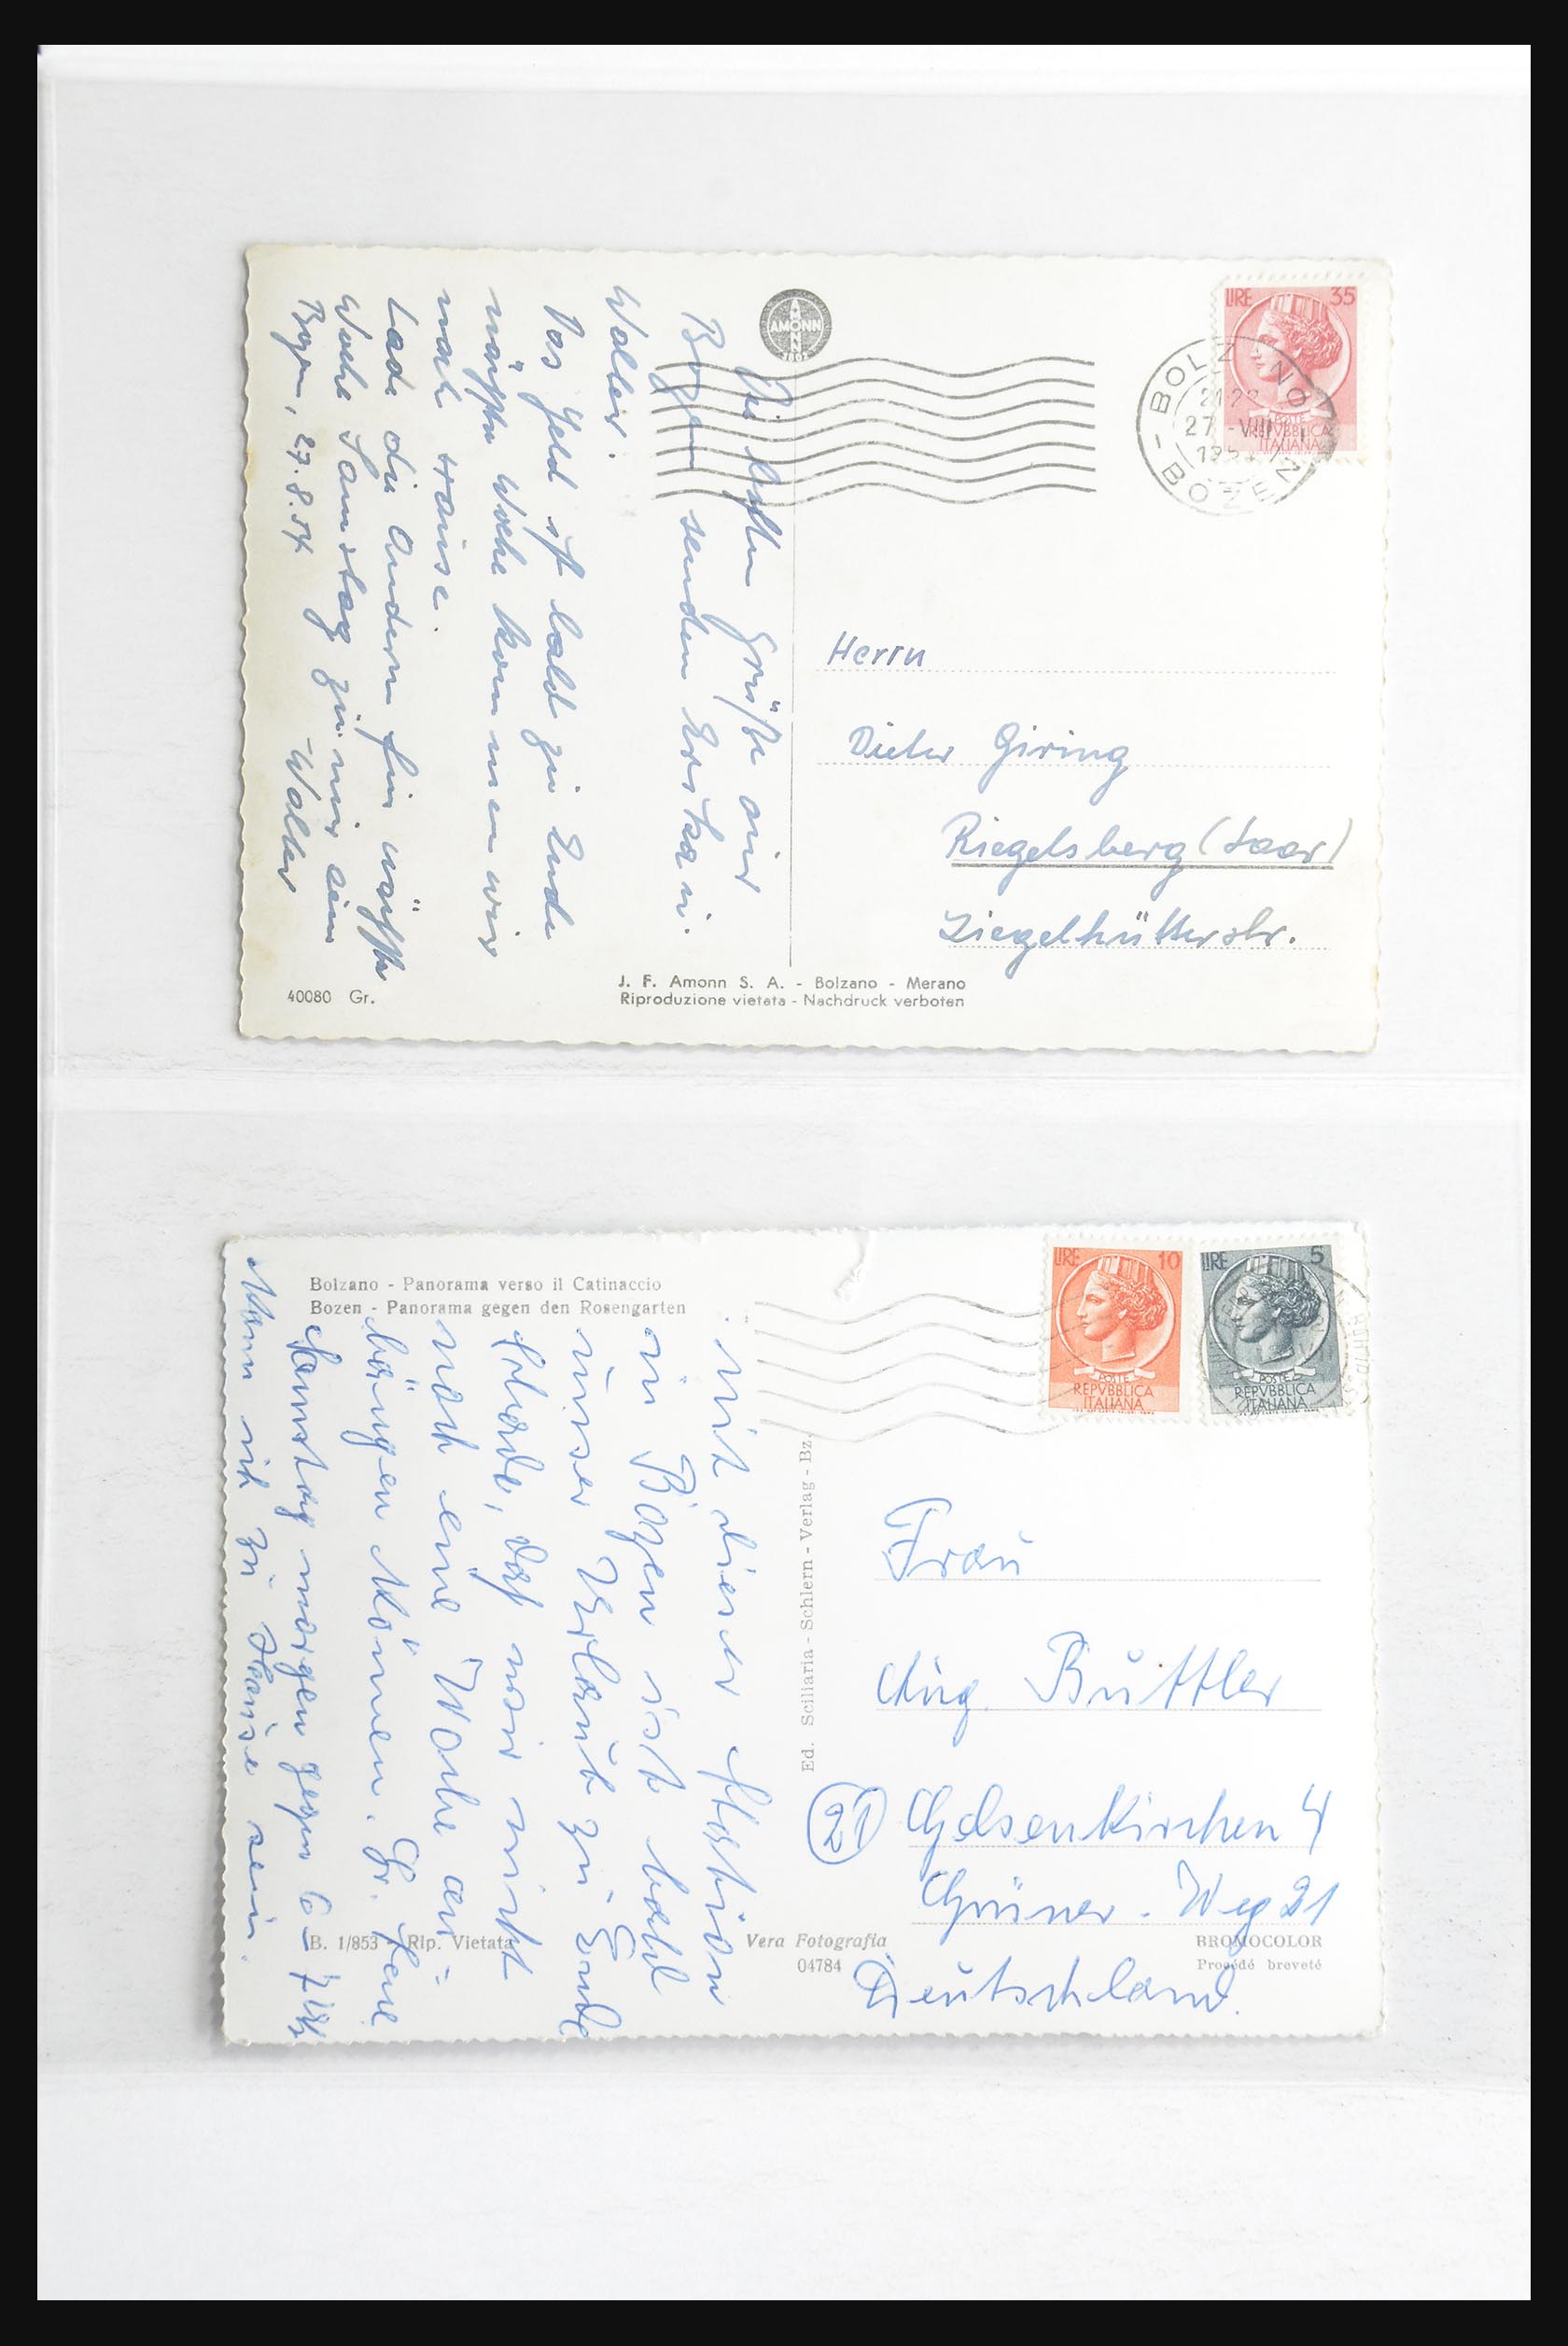 AMONN
LIRE 35
POSTE
REPVBBLICA
ITALIANA
BOLZANO
21-22
27 -VIII
195
BOZEN
Die besten Grüße aus
Bozen senden Erika u.
Walter.
Das Geld ist bald zu Ende
nächste Woche kommen wir
nach Hause.
Lade die Andern für nächste
Woche Samstag zu mir ein
Bozen, 27.8.54 Walter
Herrn
Dieter Giring
Riegelsberg (Saar)
Ziegelhütterstr.
40080 Gr.
J. F. Amonn S. A. - Bolzano - Merano
Riproduzione vietata - Nachdruck verboten
Bolzano - Panorama verso il Catinaccio
Bozen - Panorama gegen den Rosengarten
LIRE 10
POSTE
REPVBBLICA
ITALIANA
LIRE 5
POSTE
REPVBBLICA
ITALIANA
Mit dieser Station
in Bozen ist bald
unser Urlaub zu Ende
Schade, daß wir nicht
noch eine Woche an=
hängen können.
Samstag morgen gegen 6 - 7 Uhr
wir zu Hause sein.
Ed. Sciliaria - Schlern - Verlag - Bz.
Frau
Aug. Buttler
(21) Gelsenkirchen 4
Grüner-Weg 21
Deutschland.
B. 1/853 - Rip. Vietata
Vera Fotografia
04784
BROMOCOLOR
Procédé breveté